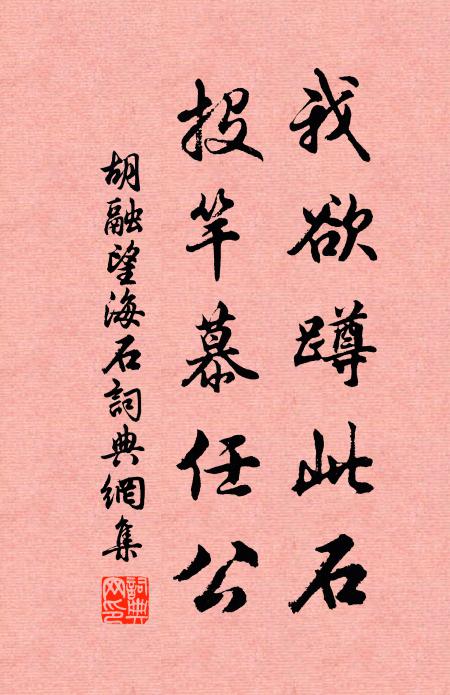 我欲蹲此石
投竿慕任公
胡融望海石詞典網集
詞典网印